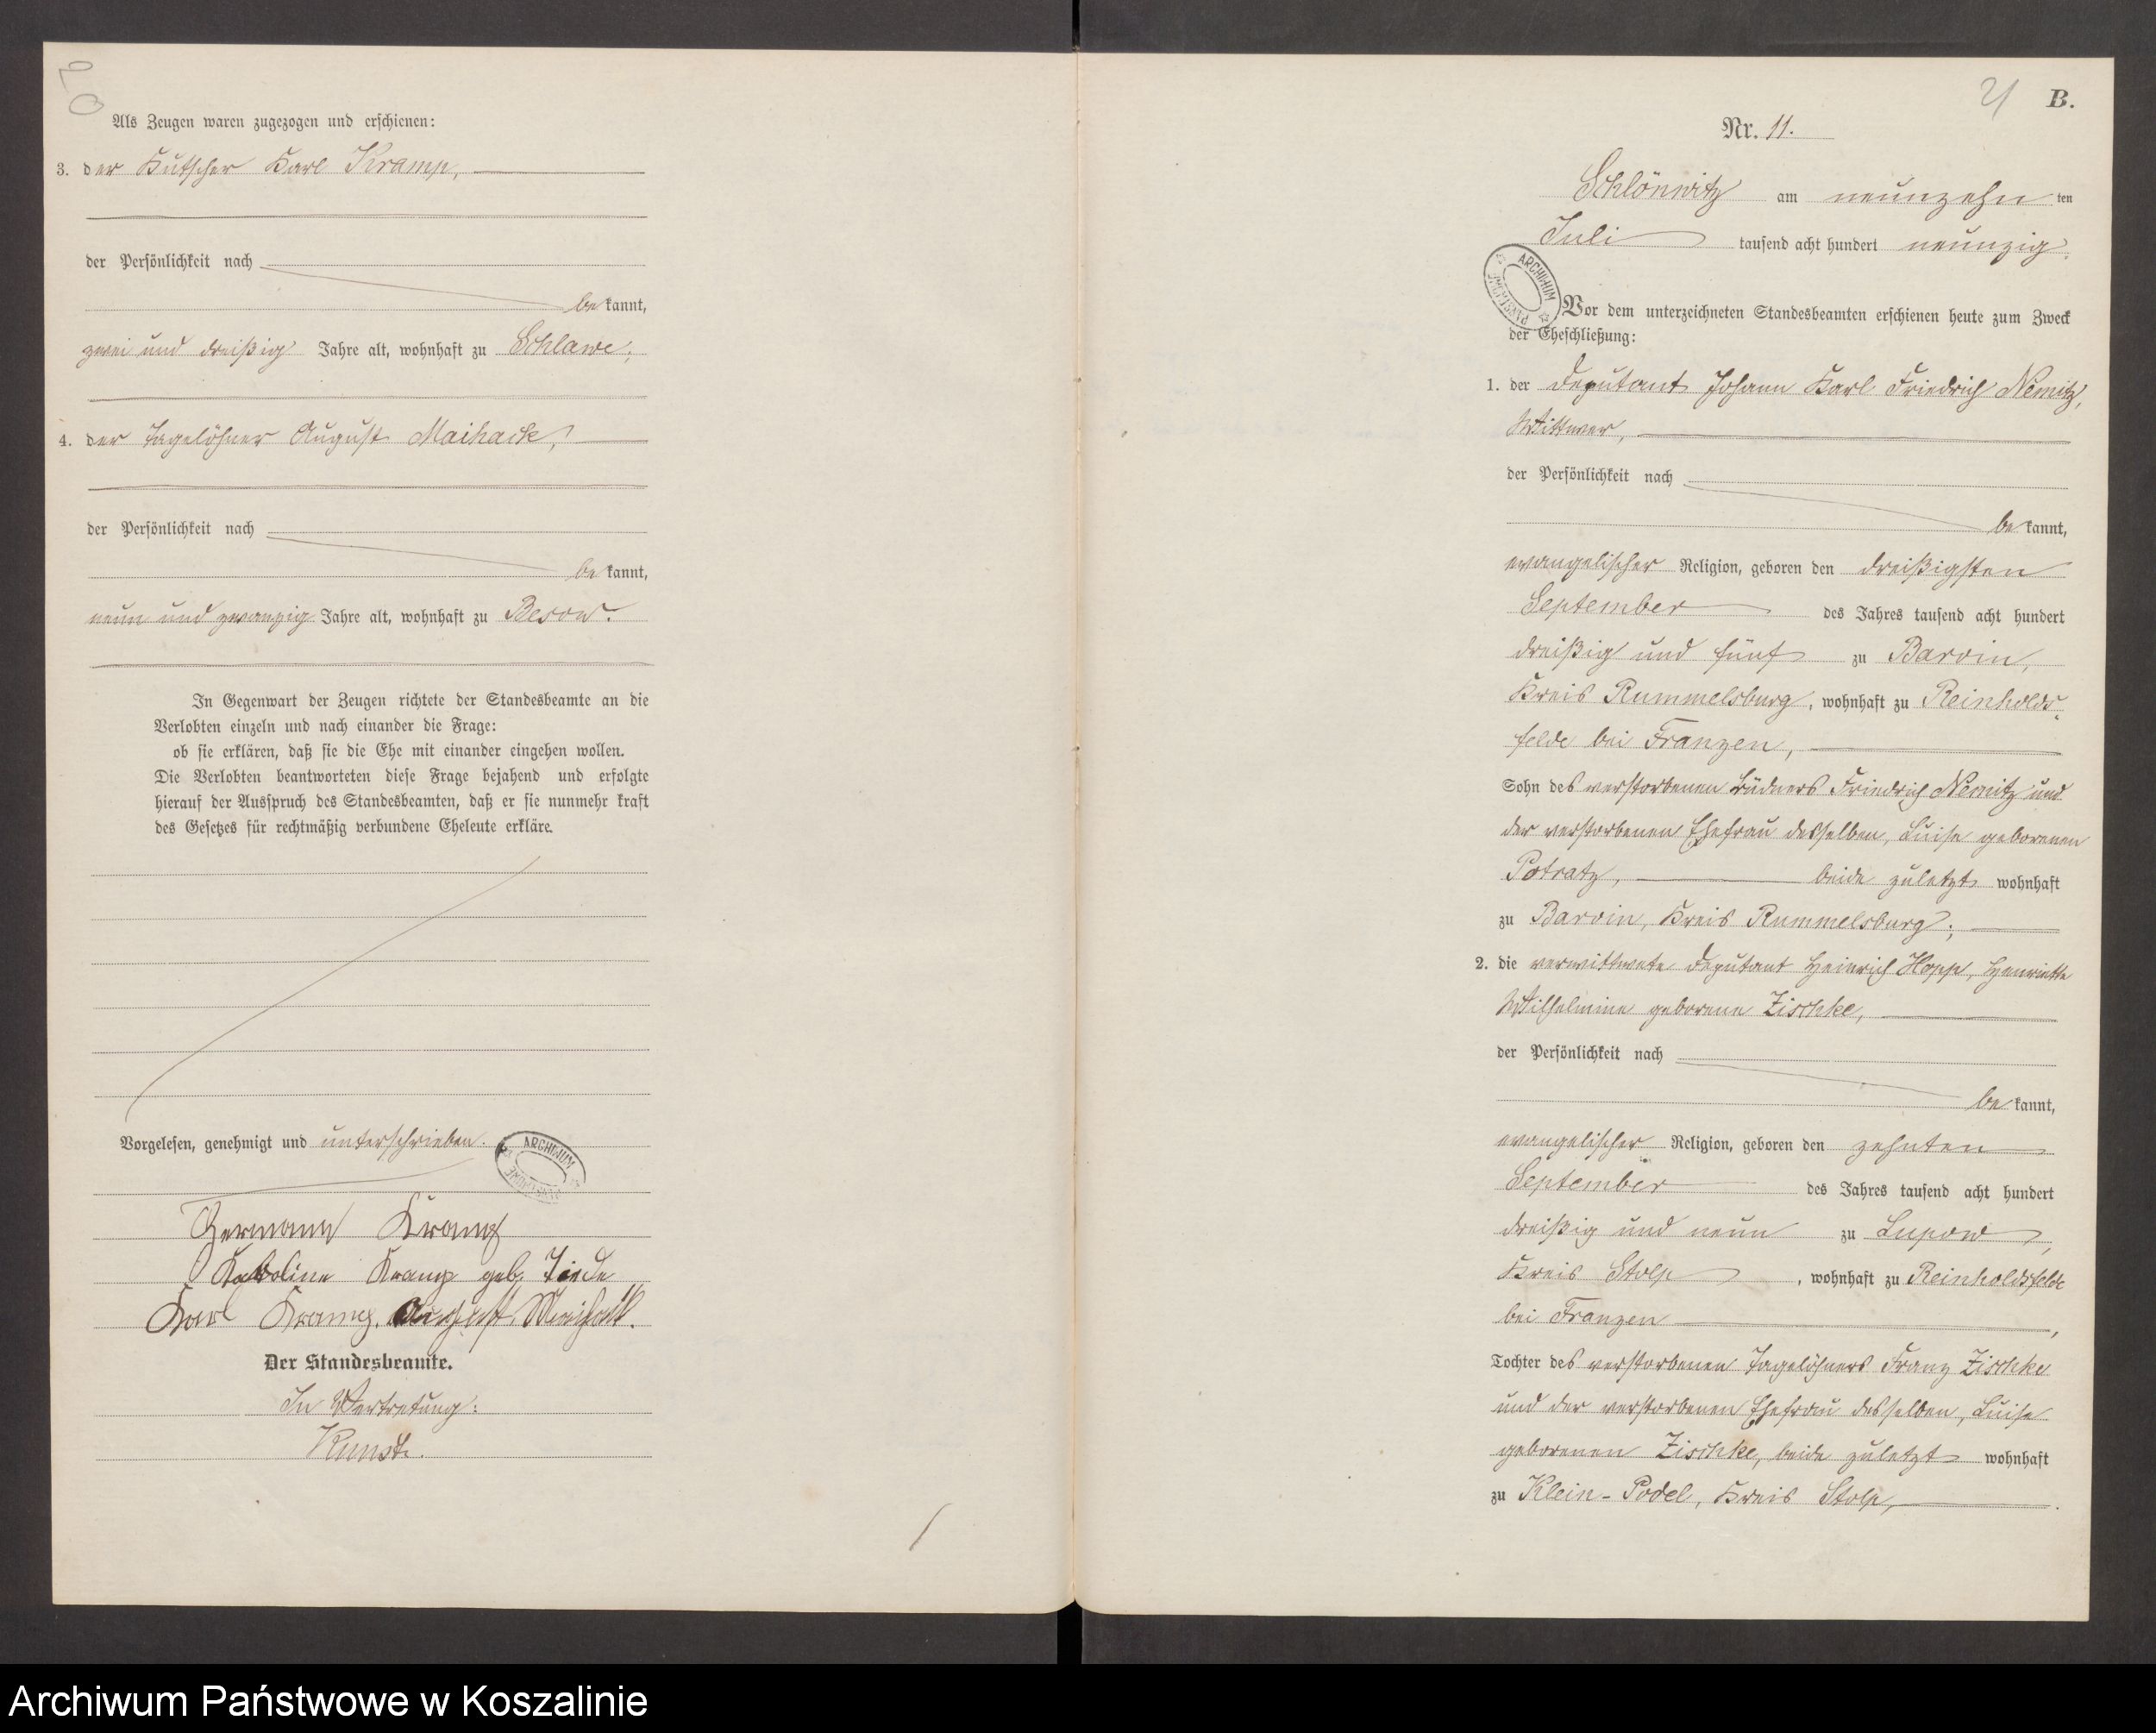 20
Als Zeugen waren zugezogen und erschienen:
3. der Kutscher Karl Kramp,
der Persönlichkeit nach
bekannt,
zwei und dreißig Jahre alt, wohnhaft zu Schlawe;
4. der Tagelöhner August Maihack,
der Persönlichkeit nach
bekannt,
neun und zwanzig Jahre alt, wohnhaft zu Besow.
In Gegenwart der Zeugen richtete der Standesbeamte an die
Verlobten einzeln und nach einander die Frage:
ob sie erklären, daß sie die Ehe mit einander eingehen wollen.
Die Verlobten beantworteten diese Frage bejahend und erfolgte
hierauf der Ausspruch des Standesbeamten, daß er sie nunmehr kraft
des Gesetzes für rechtmäßig verbundene Eheleute erkläre.
Vorgelesen, genehmigt und unterschrieben.
ARCHIWUM
Hermann Kramp
Karoline Kramp geb. Tiede
Karl Kramp. August Maihack.
Der Standesbeamte.
In Vertretung:
Kunst.
21 B.
Nr. 11.
Schlönwitz am neunzehnten
Juli tausend acht hundert neunzig.
ARCHIWUM
Vor dem unterzeichneten Standesbeamten erschienen heute zum Zweck
der Eheschließung:
1. der Deputant Johann Karl Friedrich Nemitz,
Wittwer,
der Persönlichkeit nach
bekannt,
evangelischer Religion, geboren den dreißigsten
September des Jahres tausend acht hundert
dreißig und fünf zu Barvin,
Kreis Rummelsburg, wohnhaft zu Reinholds-
felde bei Franzen,
Sohn des verstorbenen Büdners Friedrich Nemitz und
der verstorbenen Ehefrau desselben, Luise geborenen
Potratz, beide zuletzt wohnhaft
zu Barvin, Kreis Rummelsburg;
2. die verwittwete Deputant Heinrich Hopp, Henriette
Wilhelmine geborene Zischke,
der Persönlichkeit nach
bekannt,
evangelischer Religion, geboren den zehnten
September des Jahres tausend acht hundert
dreißig und neun zu Lupow,
Kreis Stolp, wohnhaft zu Reinholdsfelde
bei Franzen,
Tochter des verstorbenen Tagelöhners Franz Zischke
und der verstorbenen Ehefrau desselben, Luise
geborenen Zischke, beide zuletzt wohnhaft
zu Klein-Podel, Kreis Stolp,.
Archiwum Państwowe w Koszalinie